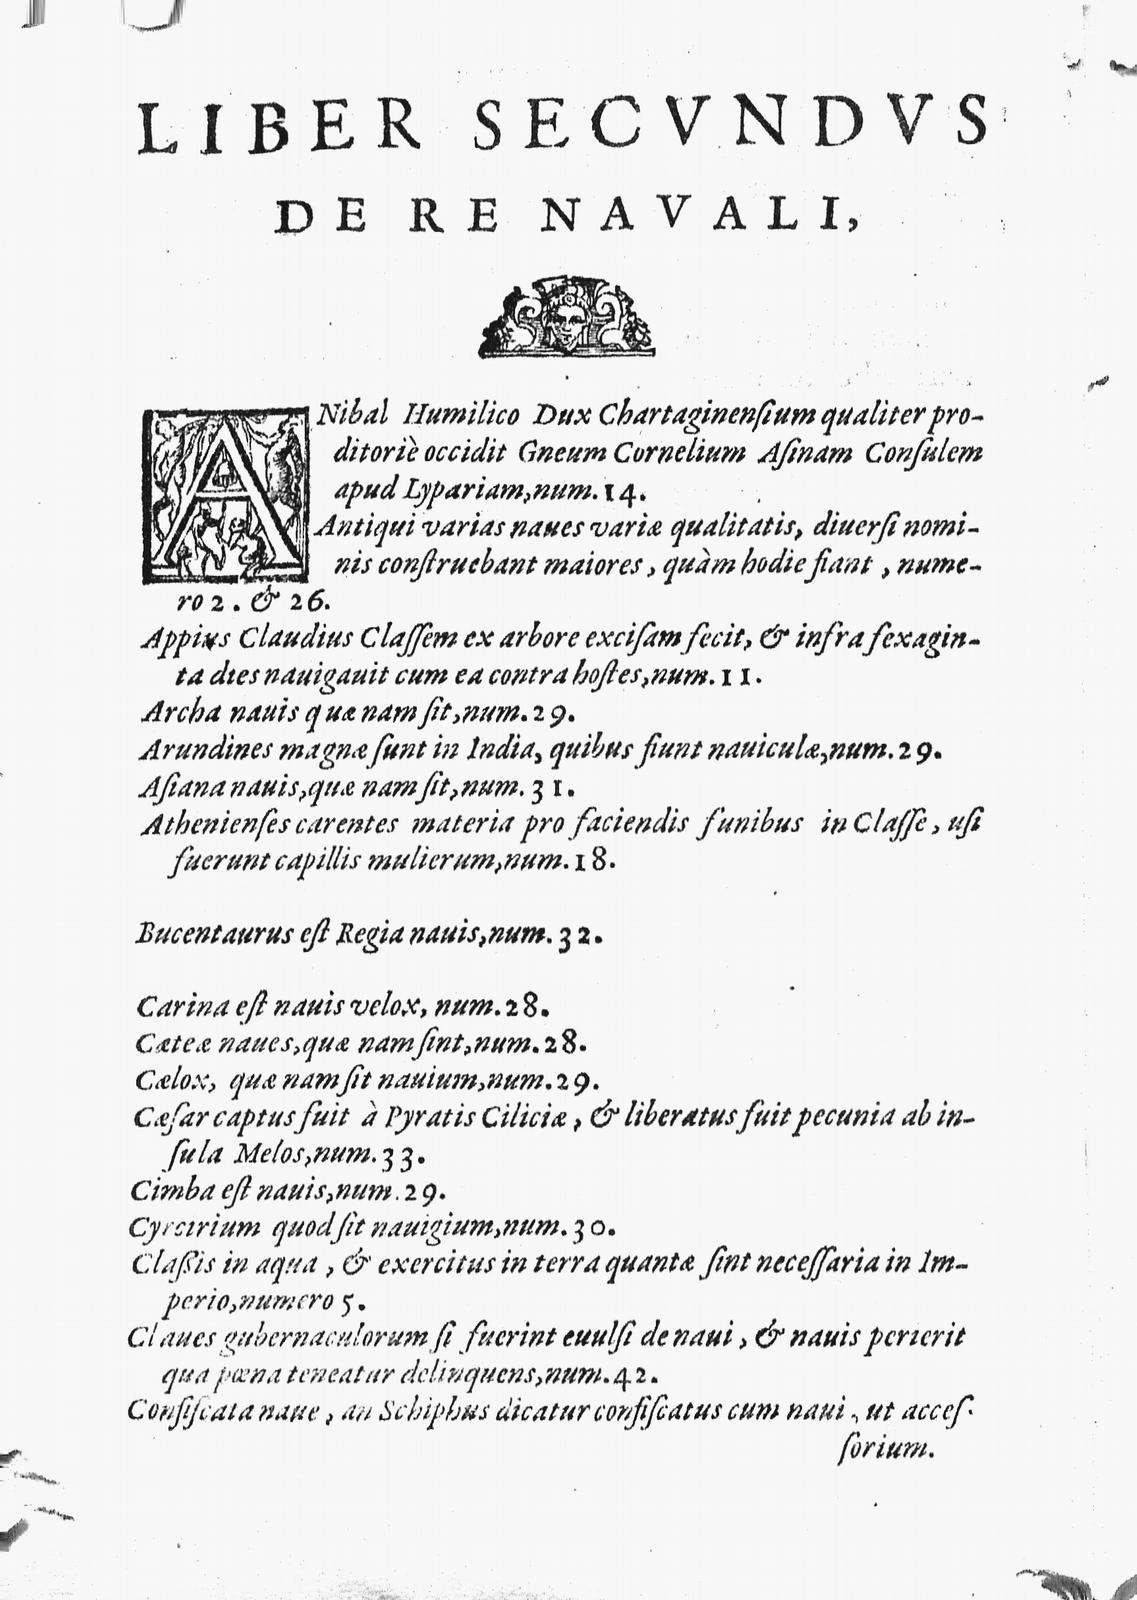 LIBER SECVNDVS
DE RE NAVALI,
ANibal Humilico Dux Chartaginenſium qualiter pro-
ditoriè occidit Gneum Cornelium Aſinam Conſulem
apud Lypariam, num. 14.
Antiqui varias naues variæ qualitatis, diuerſi nomi-
nis conſtruebant maiores, quàm hodie fiant, nume-
ro 2. & 26.
Appius Claudius Claſſem ex arbore exciſam fecit, & infra ſexagin-
ta dies nauigauit cum ea contra hoſtes, num. 11.
Archa nauis quæ nam ſit, num. 29.
Arundines magnæ ſunt in India, quibus fiunt nauiculæ, num. 29.
Aſiana nauis, quæ nam ſit, num. 31.
Athenienſes carentes materia pro faciendis funibus in Claſſe, uſi
fuerunt capillis mulierum, num. 18.
Bucentaurus eſt Regia nauis, num. 32.
Carina eſt nauis velox, num. 28.
Cæteæ naues, quæ nam ſint, num. 28.
Cælox, quæ nam ſit nauium, num. 29.
Cæſar captus fuit à Pyratis Ciliciæ, & liberatus fuit pecunia ab in-
ſula Melos, num. 33.
Cimba eſt nauis, num. 29.
Cyrcirium quod ſit nauigium, num. 30.
Claſſis in aqua, & exercitus in terra quantæ ſint neceſſaria in Im-
perio, numero 5.
Claues gubernaculorum ſi fuerint euulſi de naui, & nauis perierit
qua pœna teneatur delinquens, num. 42.
Confiſcata naue, an Schiphus dicatur confiſcatus cum naui, ut acceſ-
ſorium.